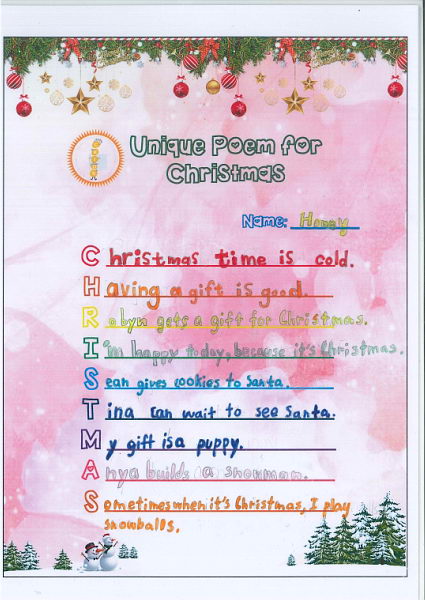 Unique Poem for
Christmas
Name: Honey
Christmas time is cold.
Having a gift is good.
Robyn gets a gift for Christmas.
I'm happy today, because it's Christmas.
Sean gives cookies to Santa.
Tina can wait to see Santa.
My gift is a puppy.
Anya builds a snowman.
Sometimes when it's Christmas, I play
snowballs.